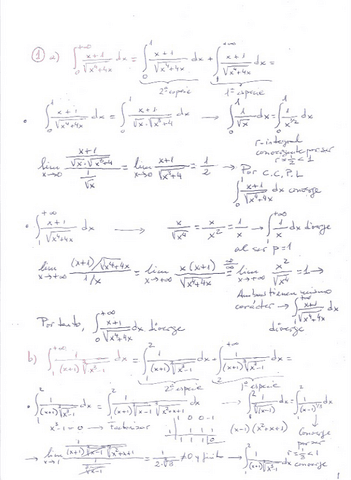 ① a) ∫₀^{+∞} (x+1)/√(x⁴+4x) dx = ∫₀¹ (x+1)/√(x⁴+4x) dx + ∫₁^{+∞} (x+1)/√(x⁴+4x) dx =
2ª especie 1ª especie
• ∫₀¹ (x+1)/√(x⁴+4x) dx = ∫₀¹ (x+1)/(√x·√(x³+4)) dx → ∫₀¹ 1/√x dx = ∫₀¹ 1/x^{1/2} dx
r-integral
convergente por ser
r = 1/2 < 1
lim_{x→0} ((x+1)/(√x·√(x³+4)))/(1/√x) = lim_{x→0} (x+1)/√(x³+4) = 1/2 → Por C.C.P.L
∫₀¹ (x+1)/√(x⁴+4x) dx converge
• ∫₁^{+∞} (x+1)/√(x⁴+4x) dx → x/√x⁴ = x/x² = 1/x → ∫₁^{+∞} 1/x dx diverge
al ser p=1
lim_{x→+∞} ((x+1)/√(x⁴+4x))/(1/x) = lim_{x→+∞} x(x+1)/√(x⁴+4x) = lim_{x→+∞} x²/√x⁴ = 1 →
Ambas tienen mismo
carácter → ∫₁^{+∞} (x+1)/√(x⁴+4x) dx
diverge
Por tanto, ∫₀^{+∞} (x+1)/√(x⁴+4x) dx diverge
b) ∫₁^{+∞} 1/((x+1)∛(x³-1)) dx = ∫₁² 1/((x+1)∛(x³-1)) dx + ∫₂^{+∞} 1/((x+1)∛(x³-1)) dx =
2ª especie 1ª especie
• ∫₁² 1/((x+1)∛(x³-1)) dx = ∫₁² 1/((x+1)∛(x-1)∛(x²+x+1)) dx → ∫₁² 1/∛(x-1) dx = ∫₁² 1/(x-1)^{1/3} dx
x³-1=0 → Factorizar
1 0 0 -1
1 1 1 1
1 1 1 0
(x-1)(x²+x+1)
Converge
por ser
r = 1/3 < 1
→ lim_{x→1} (1/((x+1)∛(x-1)∛(x²+x+1)))/(1/∛(x-1)) = 1/(2·∛3) ≠ 0 y finito → ∫₁² 1/((x+1)∛(x³-1)) dx converge
1